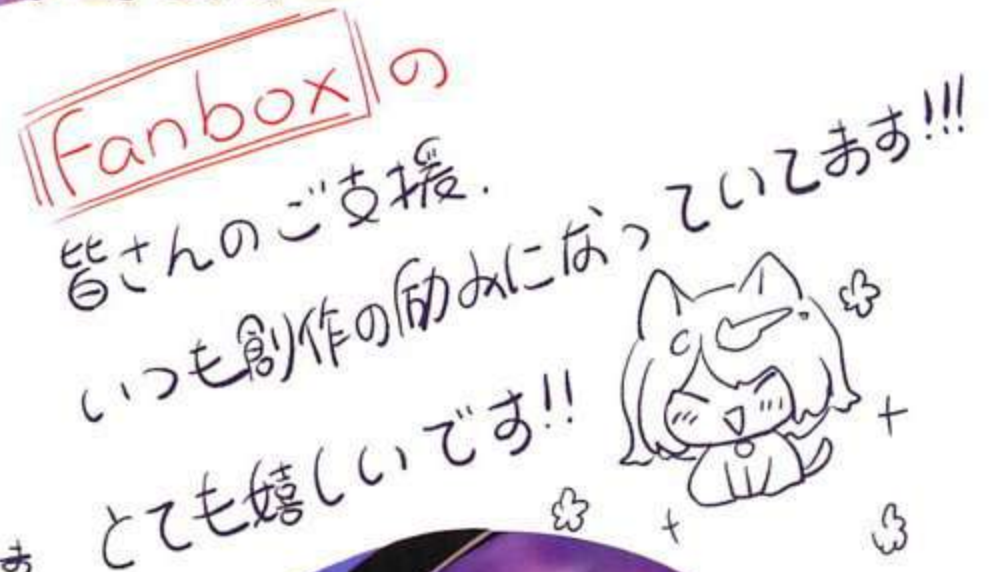 Fanboxの
皆さんのご支援.
いつも創作の励みになっていてます!!!
とても嬉しいです!!